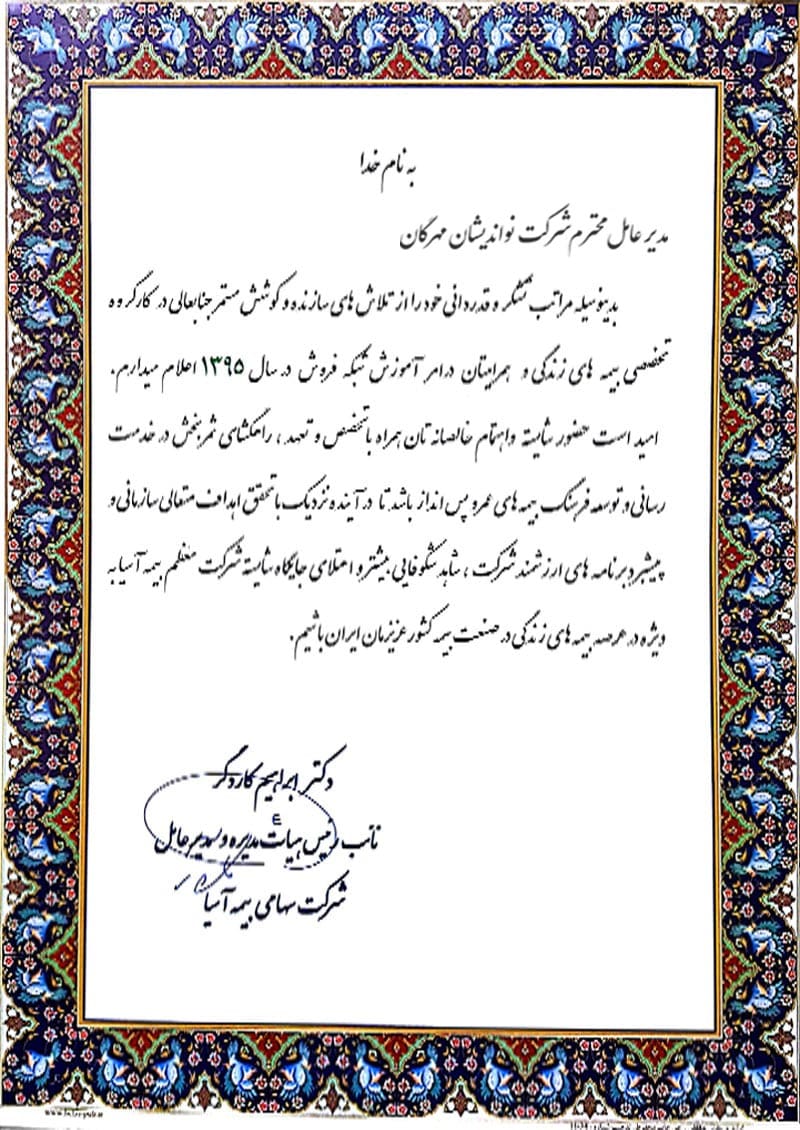 به نام خدا
مدیر عامل محترم شرکت نواندیشان مهرگان
بدینوسیله مراتب تشکر و قدردانی خود را از تلاش های سازنده و کوشش مستمر جنابعالی در کارگروه
تخصصی بیمه های زندگی و همراهیتان در امر آموزش شبکه فروش در سال ۱۳۹۵ اعلام میدارم.
امید است حضور شایسته و اهتمام خالصانه تان همراه با تخصص و تعهد، راهگشای ثمربخش در خدمت
رسانی و توسعه فرهنگ بیمه های عمر و پس انداز باشد تا در آینده نزدیک با تحقق اهداف متعالی سازمانی و
پیشبرد برنامه های ارزشمند شرکت، شاهد شکوفایی بیشتر و اعتلای جایگاه شایسته شرکت معظم بیمه آسیا به
ویژه در عرصه بیمه های زندگی در صنعت بیمه کشور عزیزمان ایران باشیم.
دکتر ابراهیم کاردگر
نائب رئیس هیأت مدیره و مدیر عامل
شرکت سهامی بیمه آسیا